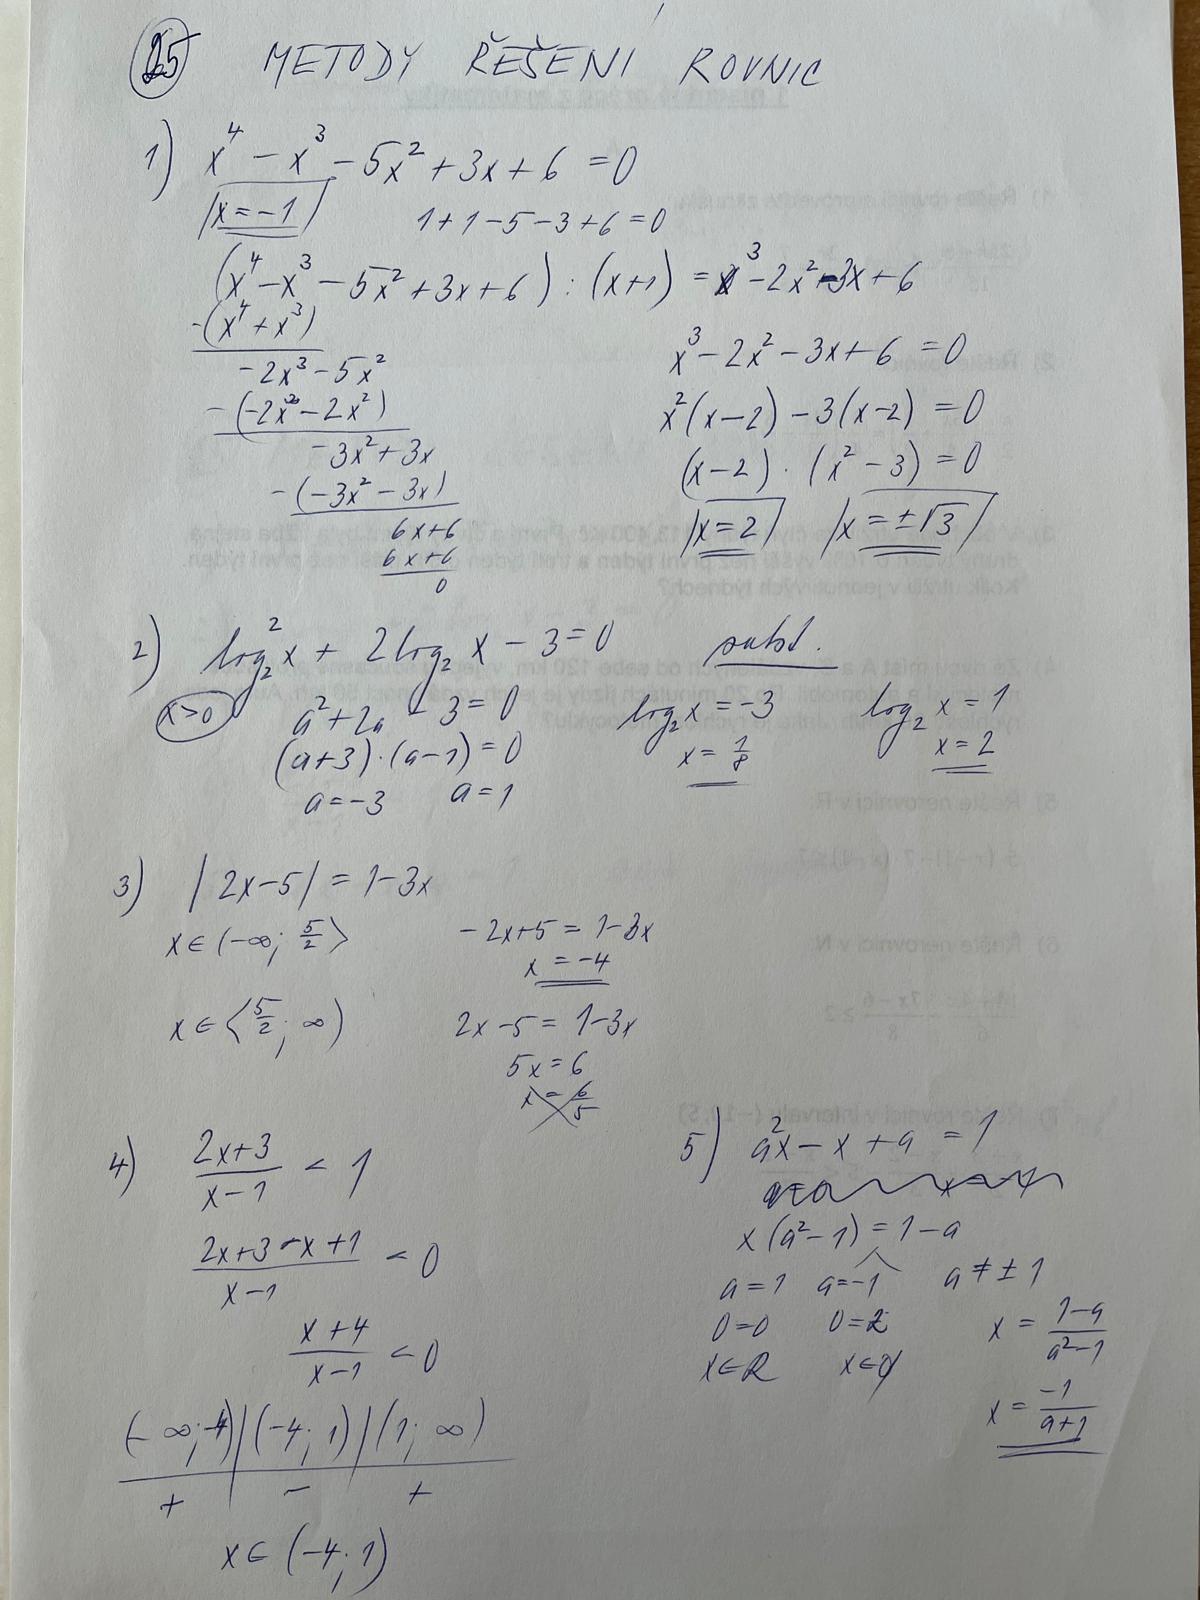 25 METODY ŘEŠENÍ ROVNIC
1) x⁴ - x³ - 5x² + 3x + 6 = 0
x = -1 1+1-5-3+6=0
(x⁴ - x³ - 5x² + 3x + 6) : (x+1) = x³ - 2x² - 3x + 6
-(x⁴ + x³)
-2x³ - 5x²
-(-2x³ - 2x²)
-3x² + 3x
-(-3x² - 3x)
6x+6
6x+6
0
x³ - 2x² - 3x + 6 = 0
x²(x-2) - 3(x-2) = 0
(x-2) · (x² - 3) = 0
x = 2 x = ±√3
2) log₂² x + 2 log₂ x - 3 = 0 subst.
x>0 a² + 2a - 3 = 0
(a+3)·(a-1) = 0
a = -3 a = 1
log₂ x = -3 log₂ x = 1
x = 1/8 x = 2
3) |2x-5| = 1-3x
x ∈ (-∞; 5/2⟩ -2x+5 = 1-3x
x = -4
x ∈ ⟨5/2; ∞) 2x-5 = 1-3x
5x = 6
x = 6/5
4) (2x+3)/(x-1) < 1
(2x+3-x+1)/(x-1) < 0
(x+4)/(x-1) < 0
(-∞;-4) | (-4;1) | (1;∞)
+ - +
x ∈ (-4;1)
5) a²x - x + a = 1
x(a²-1) = 1-a
a = 1 a = -1 a ≠ ±1
0=0 0=2 x = (1-a)/(a²-1)
x∈R x∈∅
x = -1/(a+1)